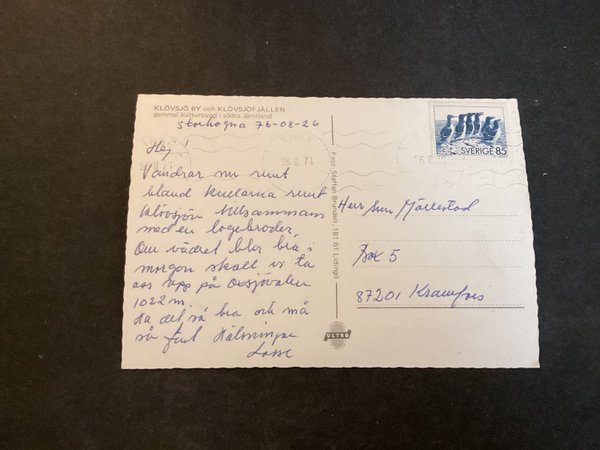 KLÖVSJÖ BY och KLÖVSJÖFJÄLLEN
gammal kulturbygd i södra Jämtland
Storhogna 76-08-26
Hej!
Vandrar nu runt
bland kullarna runt
Klövsjön tillsammans
med en logebroder.
Om vädret blir bra i
morgon skall vi ta
oss upp på Oxsjövalen
1022 m.
Ha det så bra och må
så fint Hälsningar
Lasse
26.8.76
Foto: Staffan Brundell / 181 61 Lidingö
ULTRA
SVERIGE 85
Herr Sune Mjällestad
Box 5
87201 Kramfors